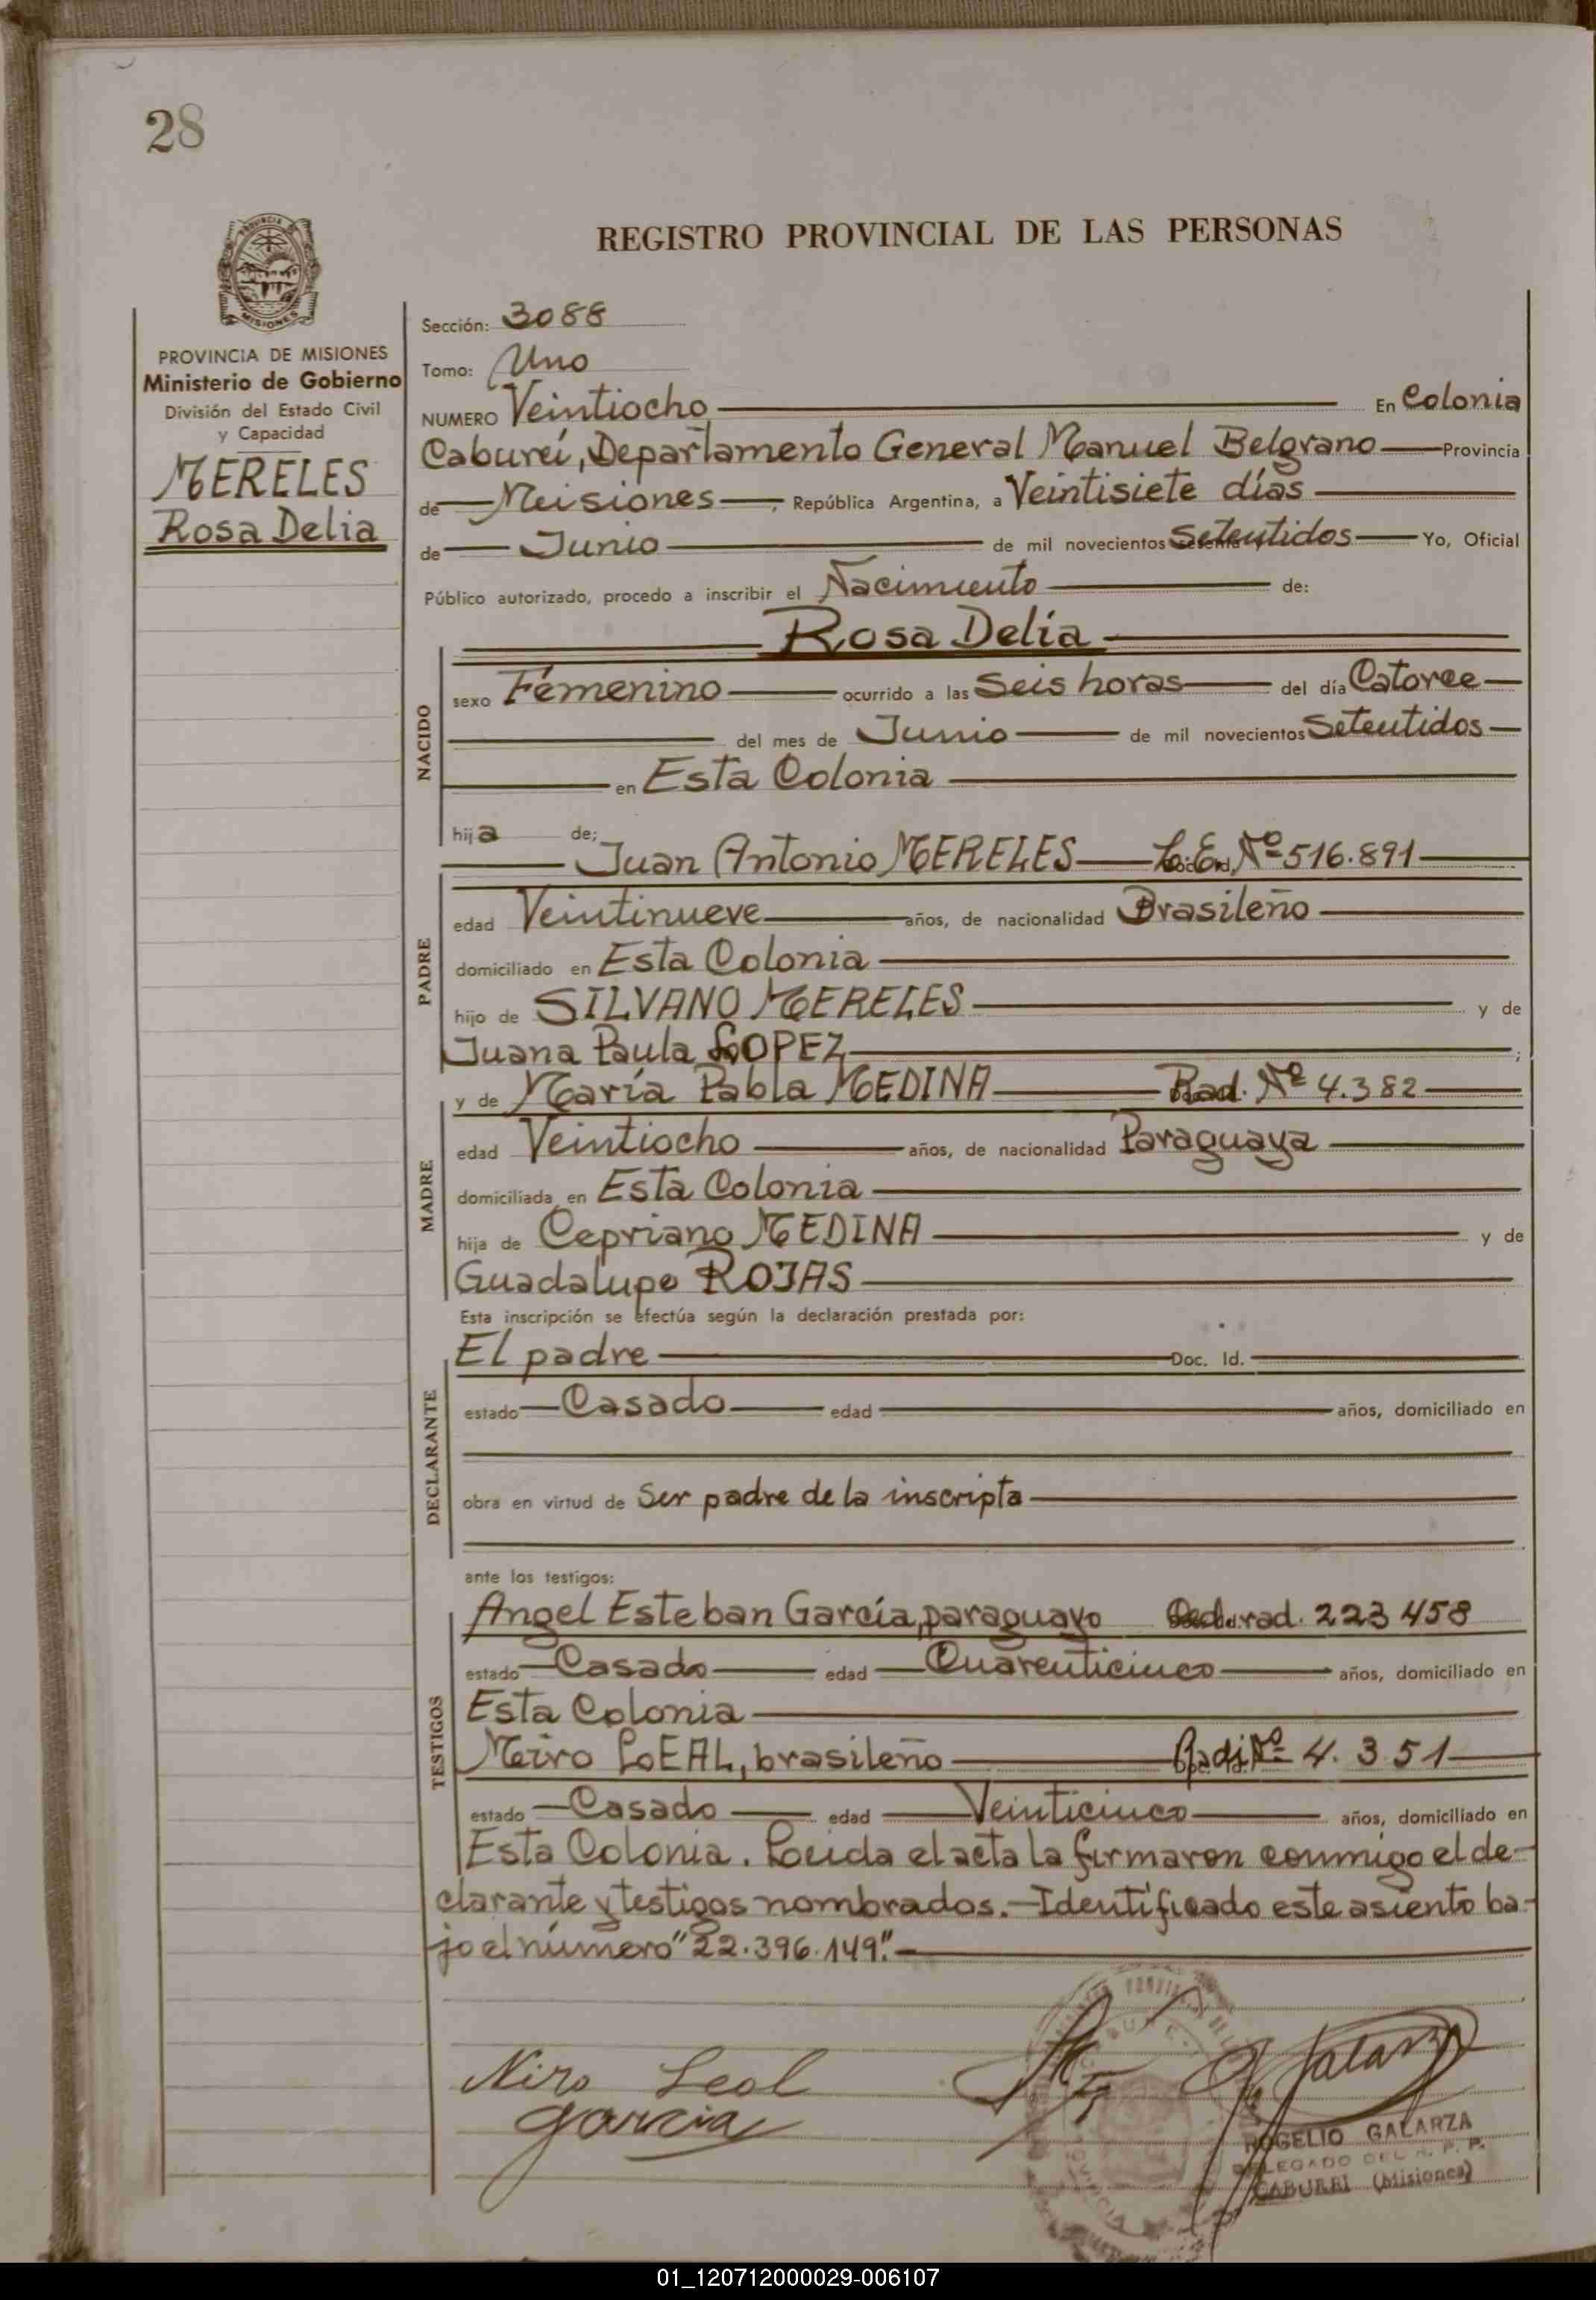 28
REGISTRO PROVINCIAL DE LAS PERSONAS
PROVINCIA DE MISIONES
Ministerio de Gobierno
División del Estado Civil
y Capacidad
MERELES
Rosa Delia
Sección: 3088
Tomo: Uno
NUMERO Veintiocho En Colonia
Caburei, Departamento General Manuel Belgrano Provincia
de Meisiones, República Argentina, a Veintisiete días
de Junio de mil novecientos Setentidos Yo, Oficial
Público autorizado, procedo a inscribir el Nacimiento de:
Rosa Delia
NACIDO
sexo Femenino ocurrido a las Seis horas del día Catorce
del mes de Junio de mil novecientos Setentidos
en Esta Colonia
hija de:
Juan Antonio MERELES L.E. Nº 516.891
PADRE
edad Veintinueve años, de nacionalidad Brasileño
domiciliado en Esta Colonia
hijo de SILVANO MERELES y de
Juana Paula LOPEZ;
y de María Pabla MEDINA Rad. Nº 4.382
MADRE
edad Veintiocho años, de nacionalidad Paraguaya
domiciliada en Esta Colonia
hija de Cepriano MEDINA y de
Guadalupe ROJAS
Esta inscripción se efectúa según la declaración prestada por:
DECLARANTE
El padre Doc. Id.
estado Casado edad años, domiciliado en
obra en virtud de Ser padre de la inscripta
ante los testigos:
TESTIGOS
Angel Esteban García, paraguayo rad. 223458
estado Casado edad Cuarenticinco años, domiciliado en
Esta Colonia
Meiro LEAL, brasileño Radi Nº 4.351
estado Casado edad Veinticinco años, domiciliado en
Esta Colonia. Leida el acta la firmaron conmigo el de-
clarante y testigos nombrados.-Identificado este asiento ba-
jo el número "22.396.149".-
Niro Leal
Garcia
Galarza
ROGELIO GALARZA
DELEGADO DEL R. P. P.
CABUREI (Misiones)
01_120712000029-006107